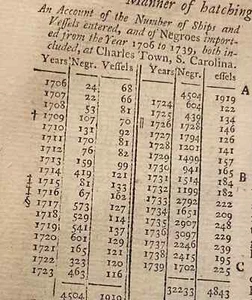 Manner of hatching
An Account of the Number of Ships and
Veſſels entered, and of Negroes import-
ed from the Year 1706 to 1739, both in-
cluded, at Charles Town, S. Carolina.
Years Negr. Veſſels
1706 24 68
1707 22 66
1708 53 81
† 1709 107 70
1710 131 92
1711 170 81
1712 76 82
1713 159 99
1714 419 121
‡ 1715 81 133
‡ 1716 67 162
§ 1717 573 127
1718 529 114
1719 541 137
1720 601 129
1721 165 121
1722 323 120
1723 463 116
4504 1919
Years Negr. Veſſels
4504 1919
1724 604 122
1725 439 134
‖ 1726 1728 146
1727 126
1728 1201 141
1729 1499 157
1730 941 165
1731 1514 184
1732 1199 182
1733 2792 222
1734 1651 209
1735 2907 248
1736 3097 229
1737 2246 239
1738 2415 195
1739 1702 225
32233 4843
A
B
C